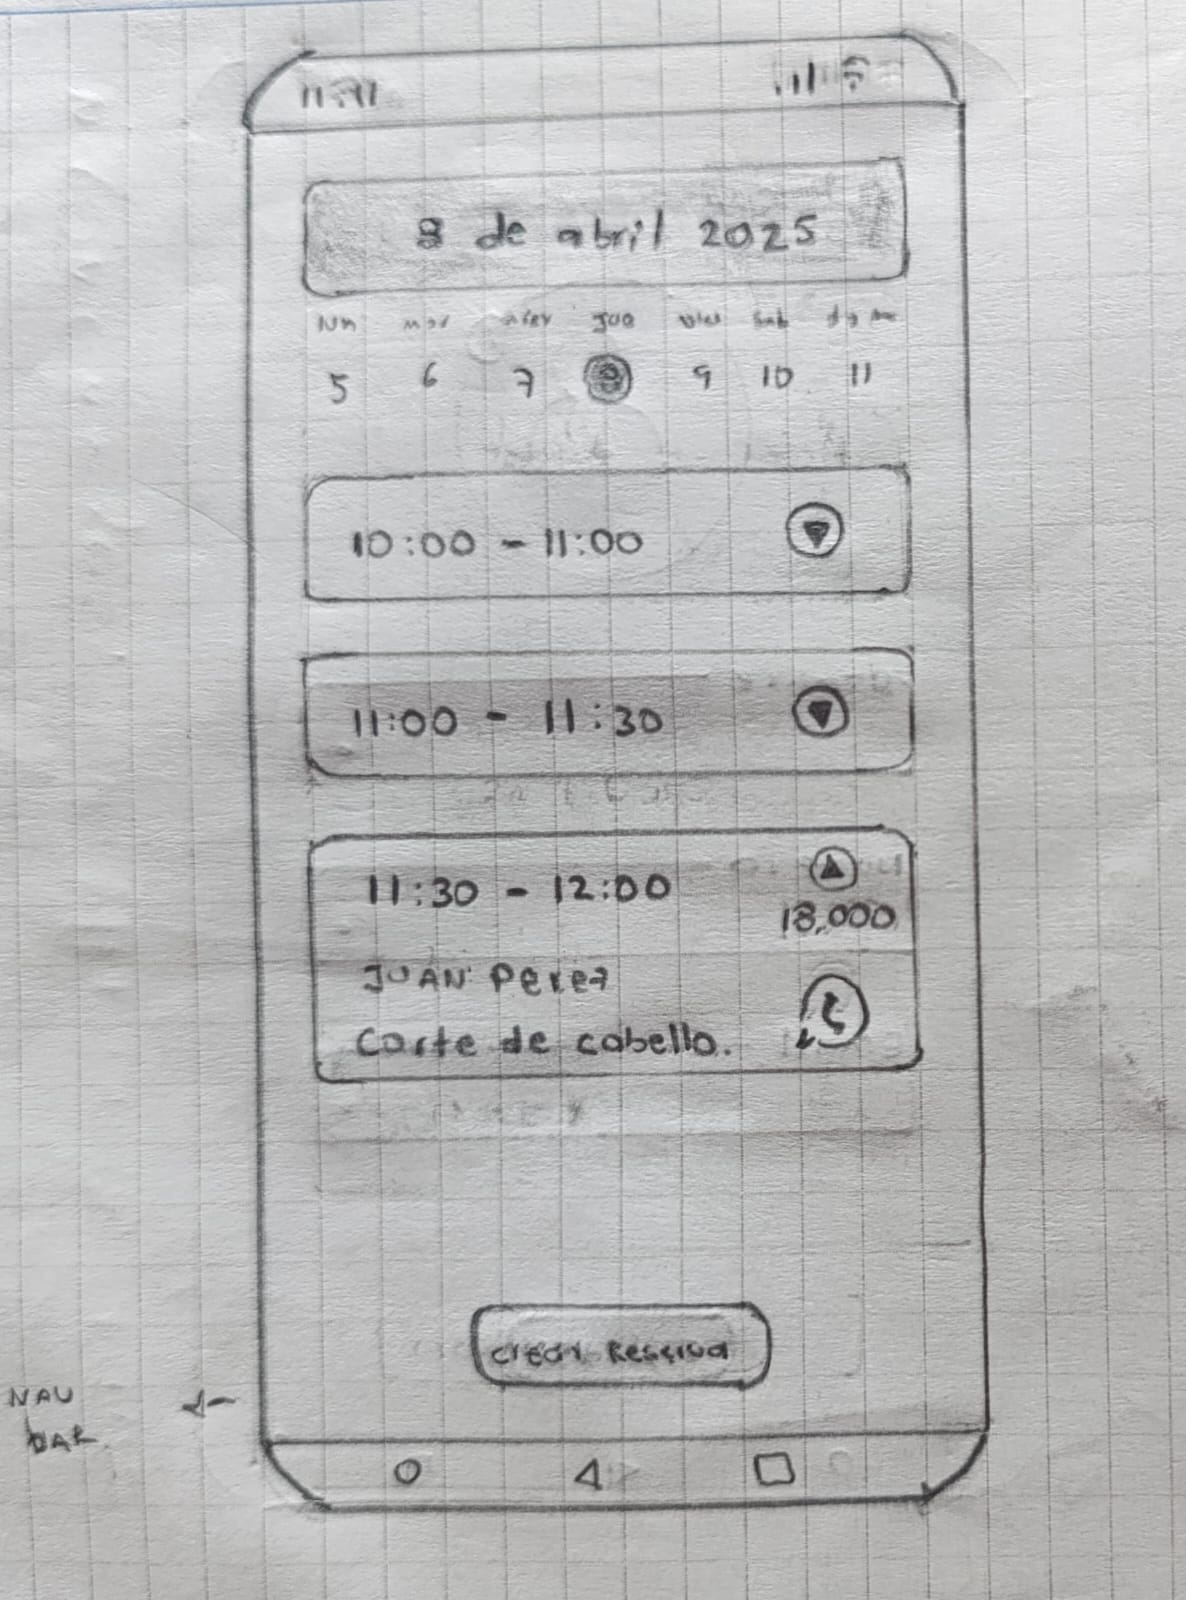 11:41
8 de abril 2025
lun mar mier jue vier sab dom
5 6 7 8 9 10 11
10:00 - 11:00
11:00 - 11:30
11:30 - 12:00
18,000
JUAN Perez
Corte de cabello.
crear Reserva
NAV
BAR